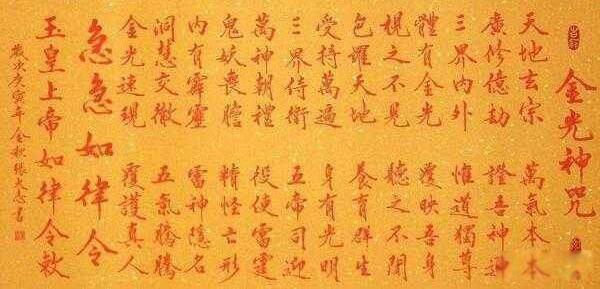 金光神咒
天地玄宗 萬氣本本
廣修億劫 證吾神通
三界內外 惟道獨尊
體有金光 覆映吾身
視之不見 聽之不聞
包羅天地 養育群生
受持萬遍 身有光明
三界侍衛 五帝司迎
萬神朝禮 役使雷霆
鬼妖喪膽 精怪亡形
內有霹靂 雷神隱名
洞慧交徹 五氣騰騰
金光速現 覆護真人
急急如律令
玉皇上帝如律令敕
歲次庚寅年金秋張大書